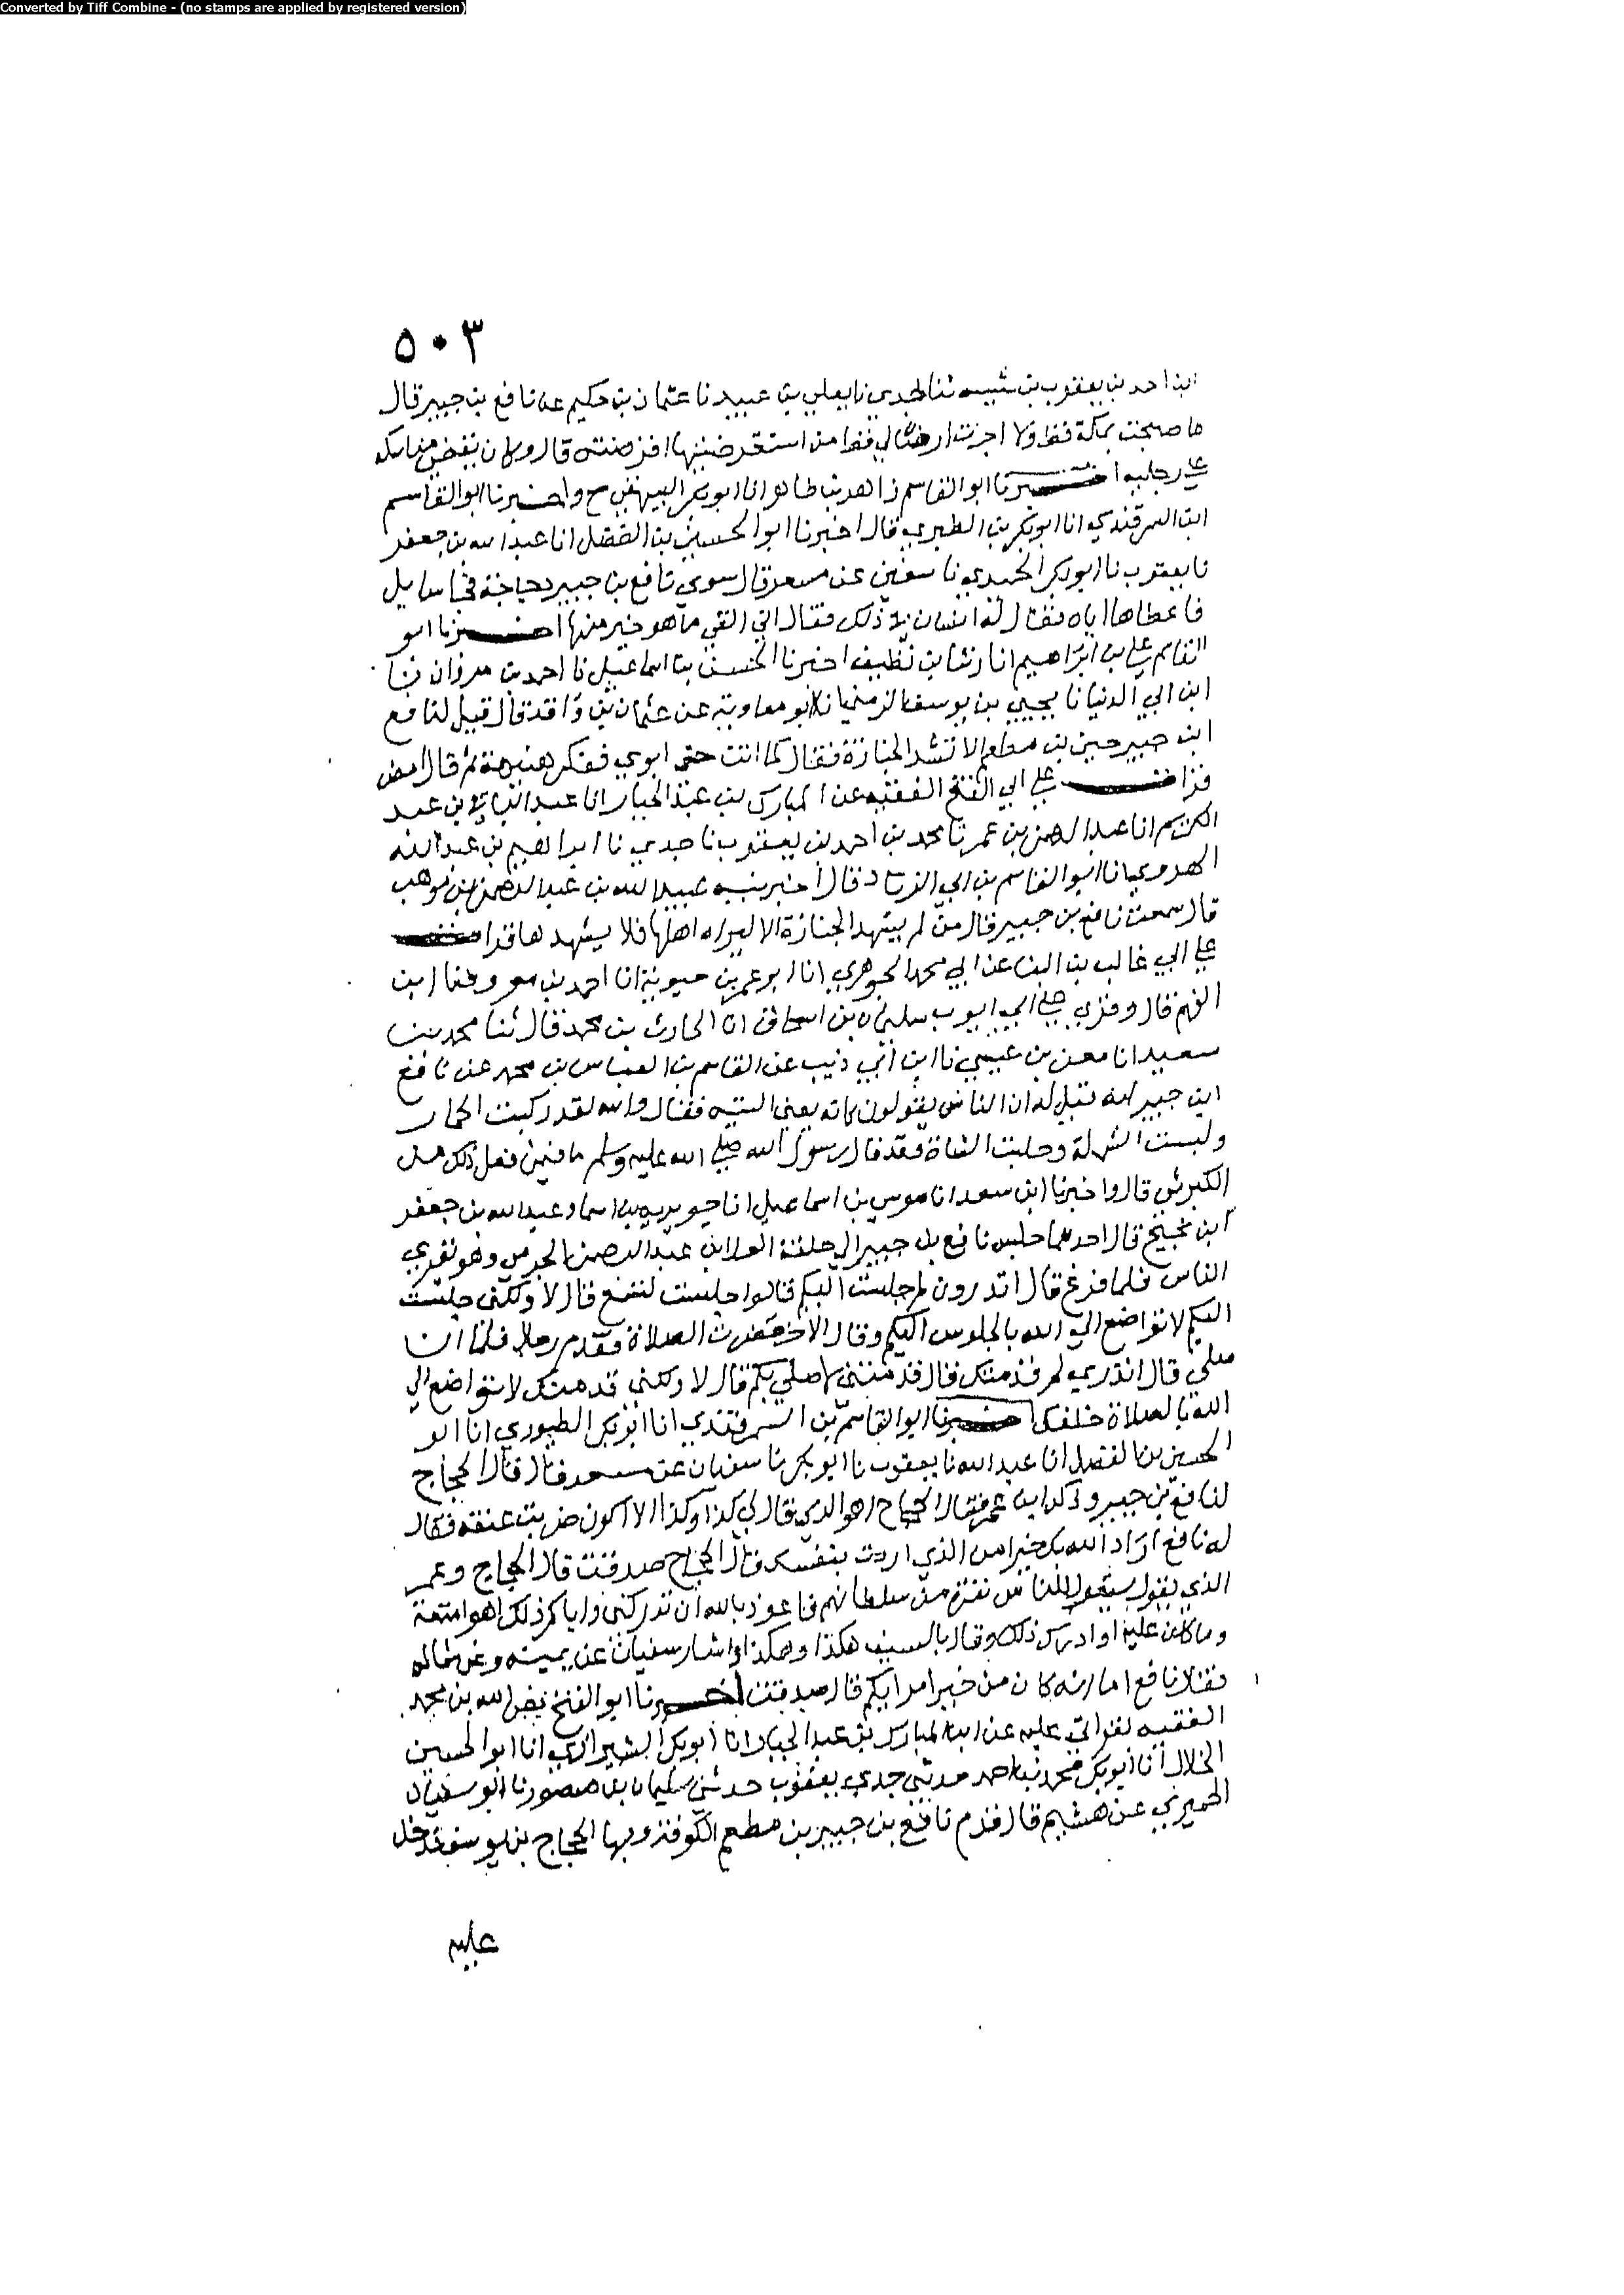 Converted by Tiff Combine - (no stamps are applied by registered version)
٥٠٣
ابن احمد بن يعقوب بن شيبه ثنا جدي نا يعلي بن عبيد نا عثمان بن حكيم عن نافع بن جبير قال
ما صحت بمكة فقط ولا اجرت ارضا لي فقط من استقرضنيها اقرضته قال وكان يقضي مناسكه
علي رجليه اخبرنا ابو القاسم زاهر بن طاهر انا ابو بكر البيهقي ح واخبرنا ابو القاسم
ابن السمرقندي انا ابو بكر بن الطبري قالا اخبرنا ابو الحسين بن الفضل انا عبد الله بن جعفر
نا يعقوب نا ابو بكر الحميدي نا سفين عن مسعر قال سوي نافع بن جبير دجاجة فجا سايل
فاعطاها اياه فقال له انسان في ذلك فقال اني القي ما هو خير منها اخبرنا ابو
القاسم علي بن ابراهيم انا رشا بن نظيف اخبرنا الحسن بن اسماعيل نا احمد بن مروان نا
ابن ابي الدنيا نا يحيي بن يوسف الزمي نا ابو معاوية عن عثمان بن واقد قال قيل لنافع
ابن جبير بن مطعم الا تشهد الجنازة فقال كما انت حتي انوي ففكر هنيهة ثم قال امض
قرات علي ابي الفتح الفقيه عن المبارك بن عبد الجبار انا عبد الباقي بن عبد
الكريم انا عبد الرحمن بن عمر نا محمد بن احمد بن يعقوب نا جدي نا ابراهيم بن عبد الله
الهروي انا ابو القاسم بن ابي الزناد قال اخبرنيه عبيد الله بن عبد الرحمن بن موهب
قال سمعت نافع بن جبير قال من لم يشهد الجنازة الا ليراه اهلها فلا يشهدها قرات
علي ابي غالب بن البنا عن ابي محمد الجوهري انا ابو عمر بن حيوية انا احمد بن معروف نا ابن
الفهم قال وقري علي ابي ايوب سليمان بن اسحاق انا الحارث بن محمد قال ثنا محمد بن
سعيد انا معن بن عيسي نا ابن ابي ذئيب عن القاسم بن العباس بن محمد عن نافع
ابن جبير انه قيل له ان الناس يقولون كانه يعني التيه فقال والله لقد ركبت الحمار
ولبست الشملة وحلبت الشاة وقد قال رسول الله صلي الله عليه وسلم ما فيمن فعل ذلك من
الكبر شي قال واخبرنا ابن سعد انا موسي بن اسماعيل انا جويريه بن اسما وعبد الله بن جعفر
ابن نجيح قال احدهما جلس نافع بن جبير الي حلقة العلا بن عبد الرحمن الحرمي وهو يقري
الناس فلما فرغ قال اتدرون لم جلست اليكم قالوا جلست لتسمع قال لا ولكني جلست
اليكم لاتواضع الي الله بالجلوس اليكم وقال الاخر حضرت الصلاة فقدم رجلا فلما ان
صلي قال اتدري لم قدمتك قال قدمتني لاصلي بكم قال لا ولكني قدمتك لاتواضع الي
الله بالصلاة خلفك اخبرنا ابو القاسم بن السمرقندي انا ابو بكر الطبوري انا ابو
الحسين بن الفضل انا عبد الله نا يعقوب نا ابو بكر نا سفيان عن مسعر قال قال الحجاج
لنافع بن جبير وذكر ابن عمر فقال الحجاج اهو الذي قال لي كذا وكذا الا اكون ضربت عنقه فقال
له نافع اراد الله بك خيرا من الذي اردت بنفسك قال الحجاج صدقت قال الحجاج وعمر
الذي يقول سيكون للناس نفرة من سلطانهم فاعوذ بالله ان تدركني واياكم ذلك اهوا متبعة
وما كان عليه او ادرك ذلك وقال بالسيف هكذا وهكذا واشار سفيان عن يمينه وعن شماله
فقال نافع اما انه كان من خير امرايكم قال صدقت اخبرنا ابو الفتح نصر الله بن محمد
الفقيه بقراتي عليه عن ابي المبارك بن عبد الجبار انا ابو بكر الشيرازي انا ابو الحسين
الخلال انا ابو بكر محمد بن احمد حدثني جدي يعقوب حدثني سليمان بن منصور نا ابو سفيان
الحميري عن هشيم قال قدم نافع بن جبير بن مطعم الكوفة وبها الحجاج بن يوسف فدخل
عليه